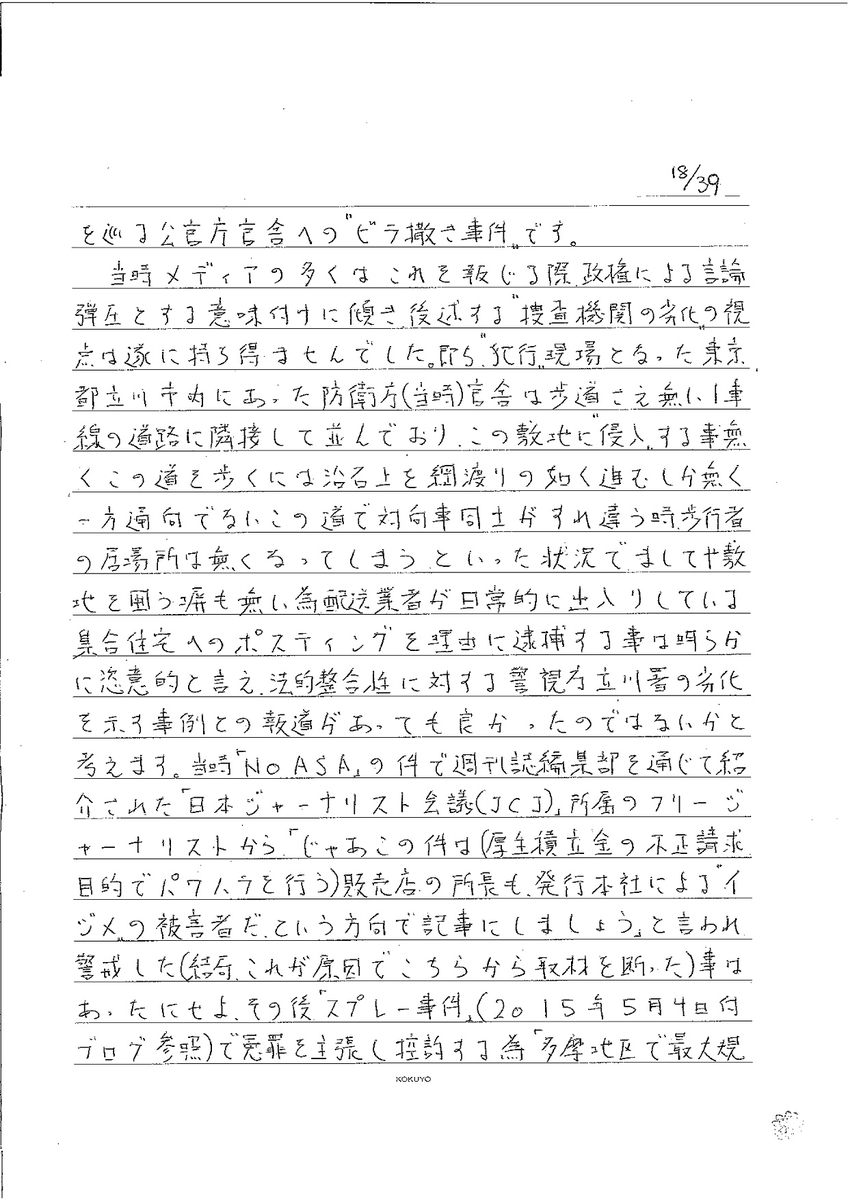 18/39
を巡る公官庁官舎への〝ビラ撒き事件〟です。
当時メディアの多くはこれを報じる際、政権による言論
弾圧とする意味付けに傾き、後述する〝捜査機関の劣化〟の視
点は遂に持ち得ませんでした。即ち〝犯行〟現場となった東京
都立川市内にあった防衛庁(当時)官舎は歩道さえ無い1車
線の道路に隣接して並んでおり、この敷地に〝侵入〟する事無
くこの道を歩くには沿石上を綱渡りの如く進むしか無く
一方通向でないこの道で対向車同士がすれ違う時、歩行者
の居場所は無くなってしまう、といった状況でましてや敷
地を囲う塀も無い為配送業者が日常的に出入りしている
集合住宅へのポスティングを理由に逮捕する事は明らか
に恣意的と言え、法的整合性に対する警視庁立川署の劣化
を示す事例との報道があっても良かったのではないかと
考えます。当時「NO ASA」の件で週刊誌編集部を通じて紹
介された「日本ジャーナリスト会議(JCJ)」所属のフリージ
ャーナリストから、「じゃあこの件は(厚生積立金の不正請求
目的でパワハラを行う)販売店の所長も、発行本社による〝イ
ジメ〟の被害者だ、という方向で記事にしましょう」と言われ
警戒した(結局、これが原因でこちらから取材を断った)事は
あったにせよ、その後「スプレー事件」(2015年5月4日付
ブログ参照)で冤罪を主張し控訴する為「多摩地区で最大規
KOKUYO